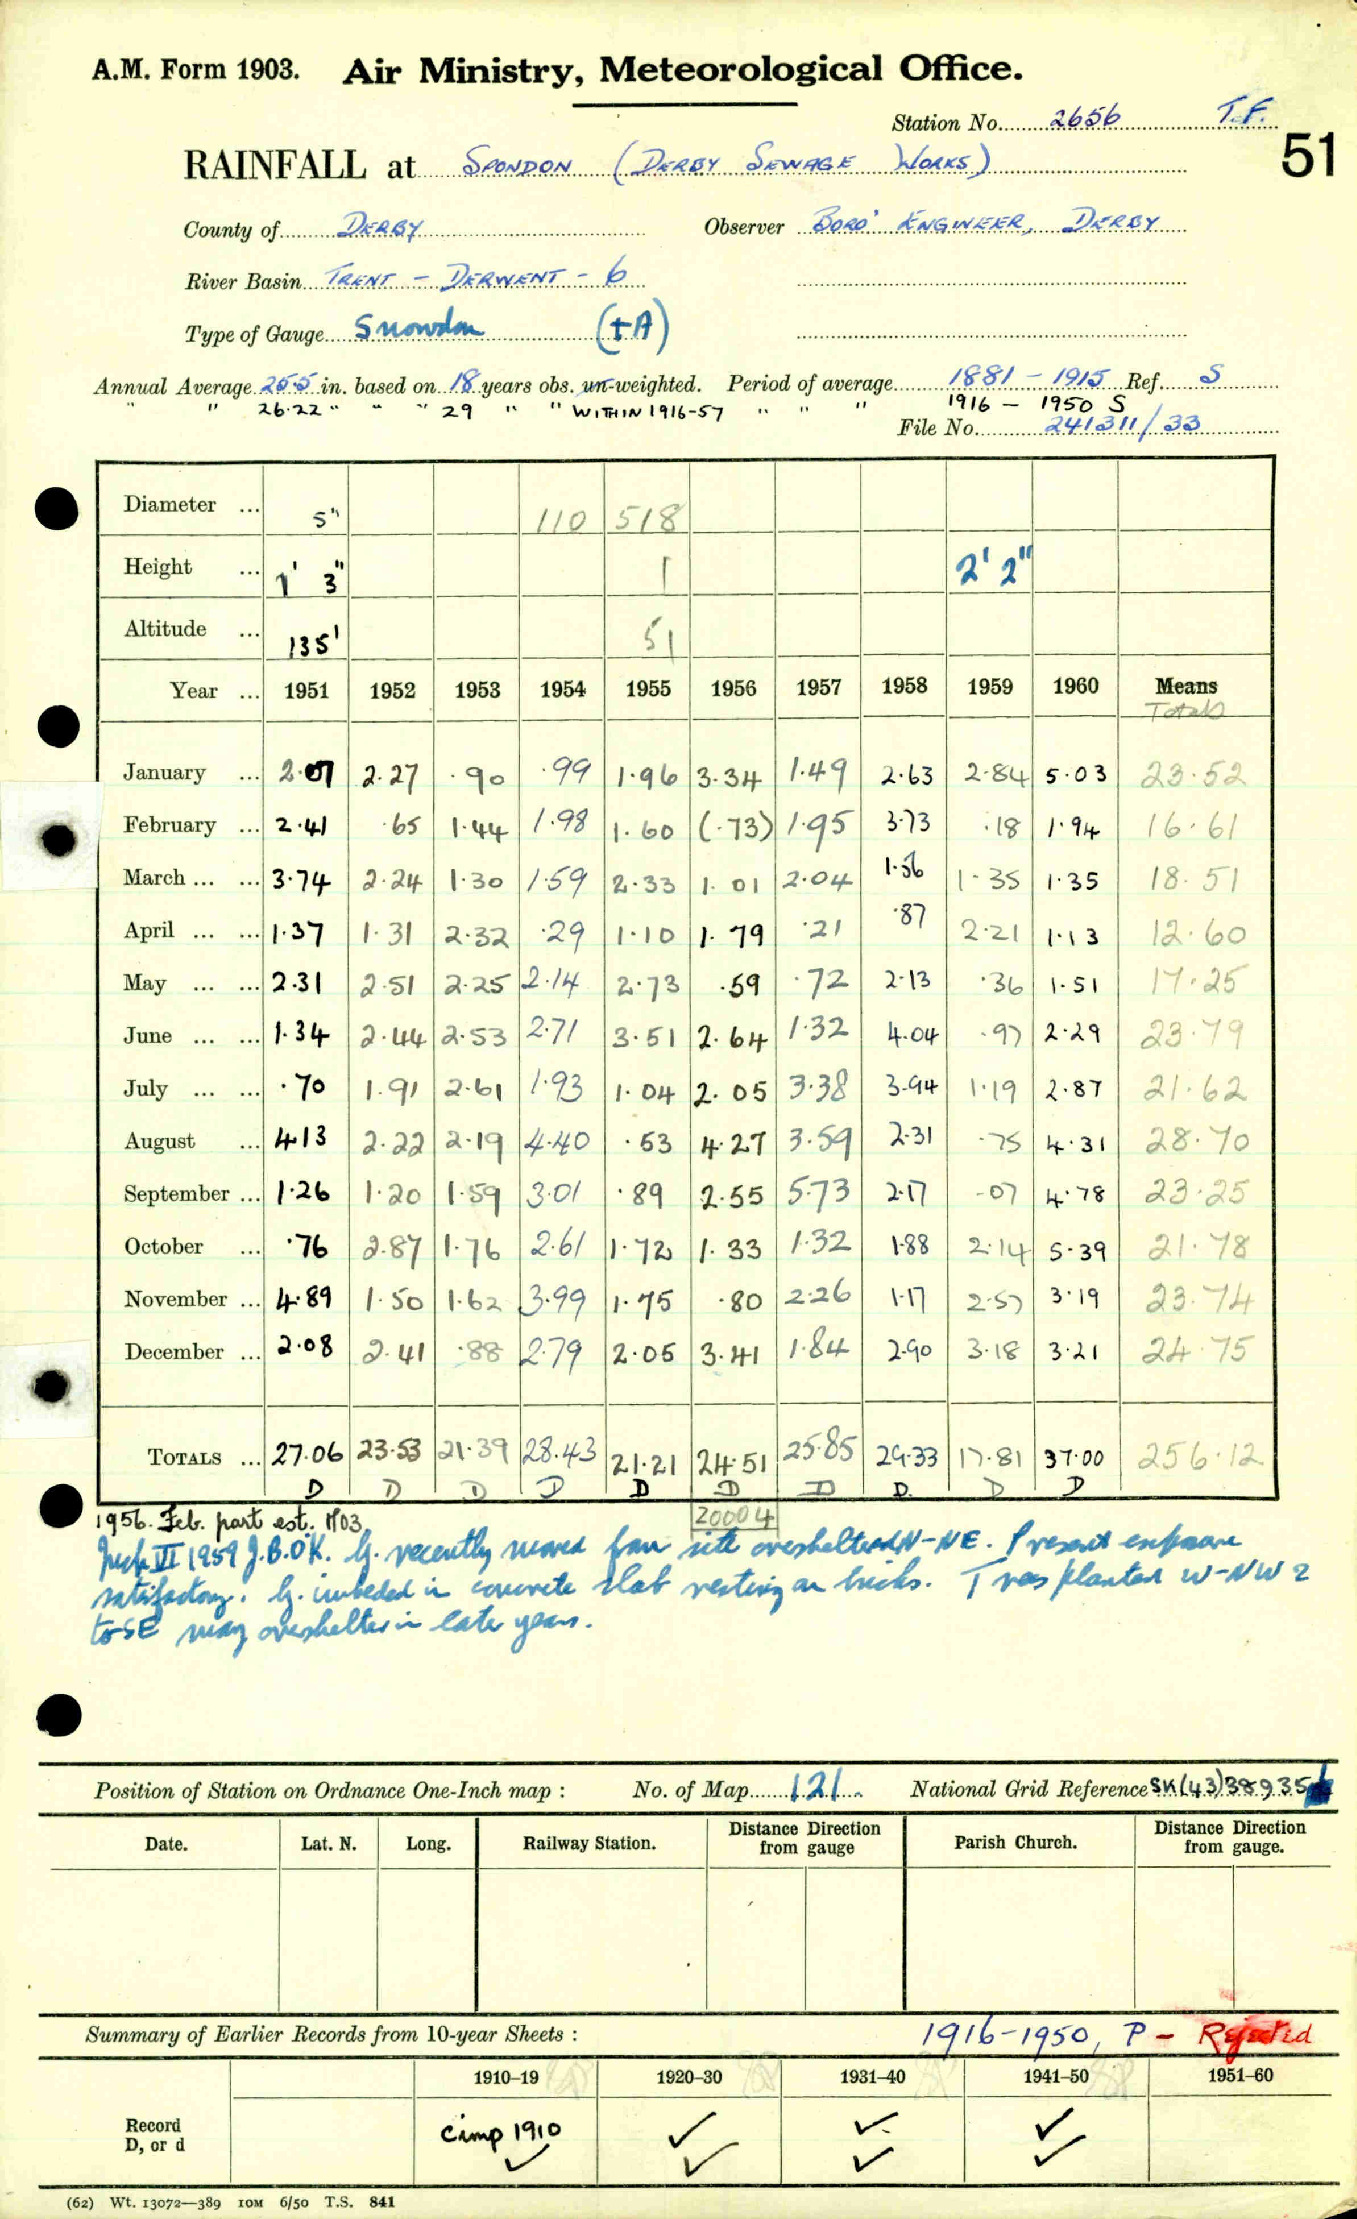 A.M. Form 1903. Air Ministry, Meteorological Office.
Station No. 2656 T.F.
51
RAINFALL at SPONDON (DERBY SEWAGE WORKS)
County of DERBY Observer BORO' ENGINEER, DERBY
River Basin TRENT - DERWENT - 6
Type of Gauge Snowdon (+A)
Annual Average 25.5 in. based on 18 years obs. un-weighted. Period of average 1881 - 1915 Ref. S
" " 26.22 " " " 29 " " WITHIN 1916-57 " " " 1916 - 1950 S
File No. 241311/33
Diameter ... 5" 110 518
Height ... 1' 3" 1 2' 2"
Altitude ... 135' 51
Year ... 1951 1952 1953 1954 1955 1956 1957 1958 1959 1960 Means
Totals
January ... 2.07 2.27 .90 .99 1.96 3.34 1.49 2.63 2.84 5.03 23.52
February ... 2.41 .65 1.44 1.98 1.60 (.73) 1.95 3.73 .18 1.94 16.61
March ... ... 3.74 2.24 1.30 1.59 2.33 1.01 2.04 1.56 1.35 1.35 18.51
April ... ... 1.37 1.31 2.32 .29 1.10 1.79 .21 .87 2.21 1.13 12.60
May ... ... 2.31 2.51 2.25 2.14 2.73 .59 .72 2.13 .36 1.51 17.25
June ... ... 1.34 2.44 2.53 2.71 3.51 2.64 1.32 4.04 .97 2.29 23.79
July ... ... .70 1.91 2.61 1.93 1.04 2.05 3.38 3.94 1.19 2.87 21.62
August ... 4.13 2.22 2.19 4.40 .53 4.27 3.59 2.31 .75 4.31 28.70
September ... 1.26 1.20 1.59 3.01 .89 2.55 5.73 2.17 .07 4.78 23.25
October ... .76 2.87 1.76 2.61 1.72 1.33 1.32 1.88 2.14 5.39 21.78
November ... 4.89 1.50 1.62 3.99 1.75 .80 2.26 1.17 2.57 3.19 23.74
December ... 2.08 2.41 .88 2.79 2.05 3.41 1.84 2.90 3.18 3.21 24.75
TOTALS ... 27.06 23.53 21.39 28.43 21.21 24.51 25.85 29.33 17.81 37.00 256.12
D D D D D D D D D D
1956. Feb. part est. M03. 20004
VI 1959 J.B.O'K. G. recently moved from site oversheltered N-NE. Present exposure
satisfactory. G. imbeded in concrete slab resting on bricks. Trees planted W-NW &
to SE may overshelter in later years.
Position of Station on Ordnance One-Inch map : No. of Map 121. National Grid Reference SK(43)38935
Date. Lat. N. Long. Railway Station. Distance from Direction gauge Parish Church. Distance from Direction gauge.
Summary of Earlier Records from 10-year Sheets : 1916-1950, P - Rejected
1910–19 1920–30 1931–40 1941–50 1951–60
Record
D, or d
Comp 1910 ✓ ✓ ✓ ✓
✓ ✓ ✓
(62) Wt. 13072—389 10M 6/50 T.S. 841